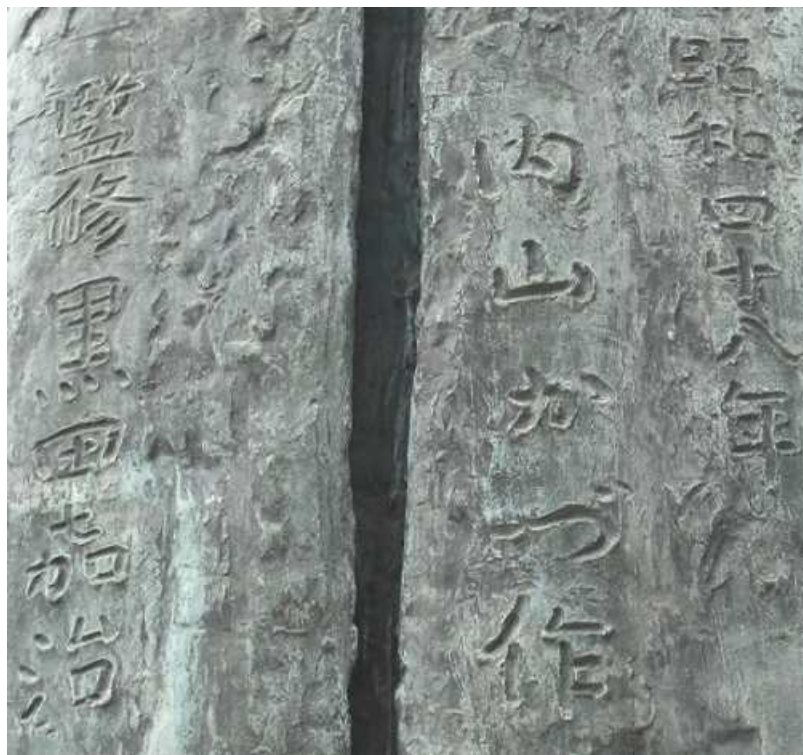 昭和四十八年
内山かづ作
監修 黒田嘉治